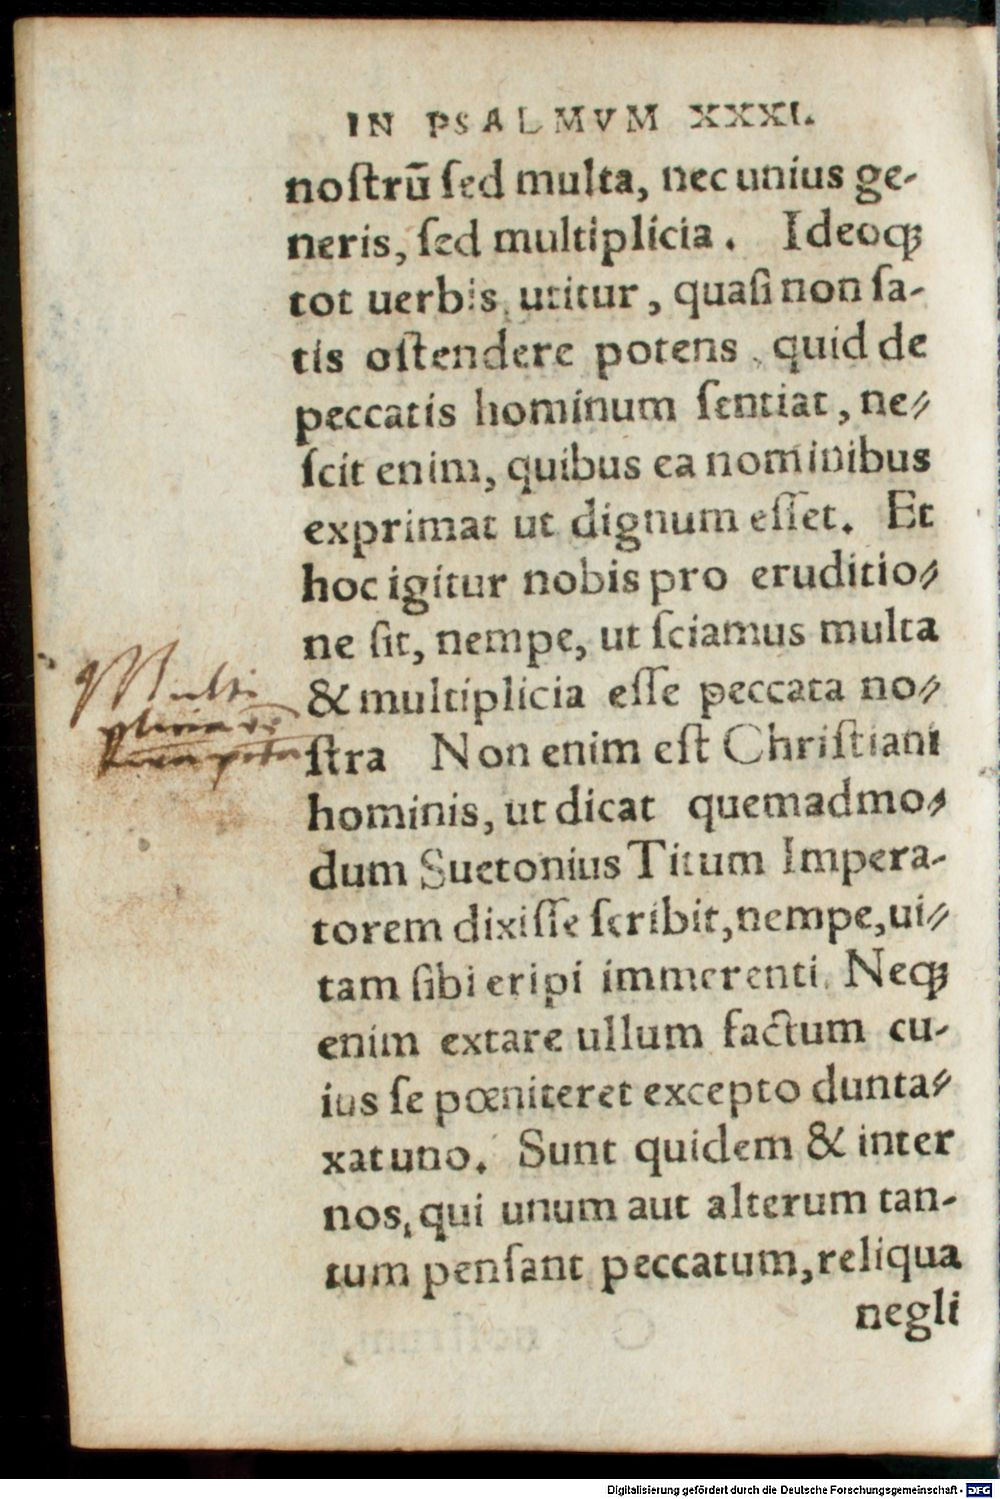 IN PSALMVM XXXI.
noſtrū ſed multa, nec unius ge-
neris, ſed multiplicia. Ideoqꝫ
tot uerbis utitur, quaſi non ſa-
tis oſtendere potens, quid de
peccatis hominum ſentiat, ne⸗
ſcit enim, quibus ea nominibus
exprimat ut dignum eſſet. Et
hoc igitur nobis pro eruditio⸗
ne ſit, nempe, ut ſciamus multa
& multiplicia eſſe peccata no⸗
ſtra Non enim eſt Chriſtiani
hominis, ut dicat quemadmo⸗
dum Suetonius Titum Impera-
torem dixiſſe ſcribit, nempe, ui⸗
tam ſibi eripi immerenti. Neqꝫ
enim extare ullum factum cu-
ius ſe pœniteret excepto dunta⸗
xat uno. Sunt quidem & inter
nos, qui unum aut alterum tan-
tum penſant peccatum, reliqua
negli
Multi
plicia
Digitalisierung gefördert durch die Deutsche Forschungsgemeinschaft - DFG